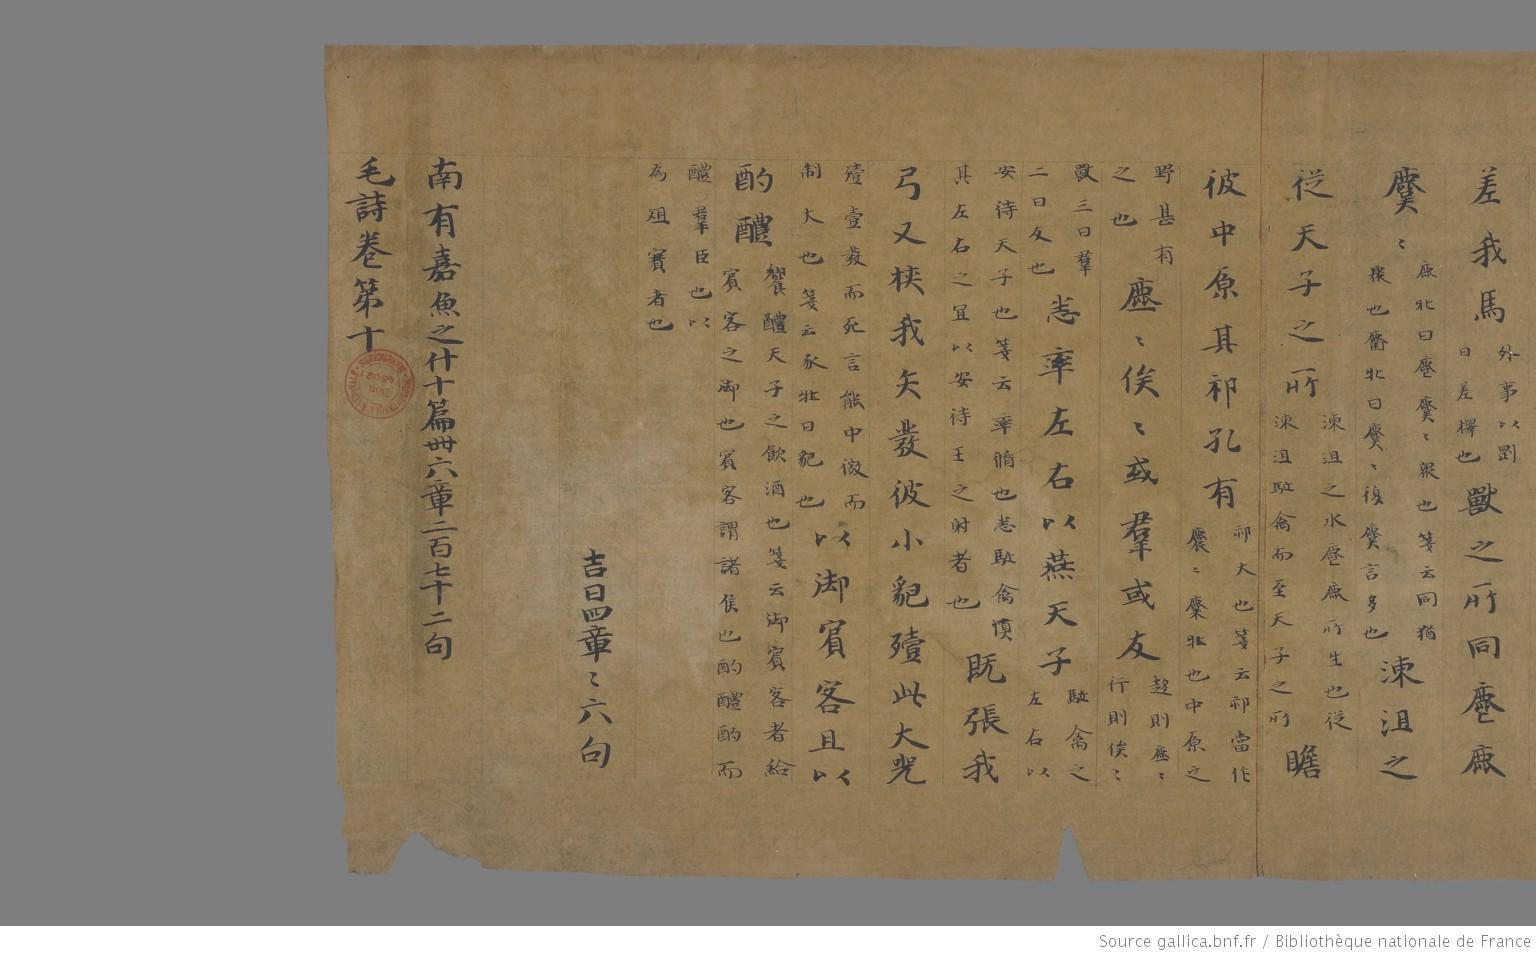 差我馬
外事以㓻
日差擇也
獸之所同麀鹿
麌〻
鹿牝曰麀麌〻衆也箋云同猶
聚也麕牝曰麌〻復麌言多也
漆沮之
從天子之所
漆沮之水麀鹿所生也從
漆沮駈禽而至天子之所
瞻
彼中原其祁孔有
祁大也箋云祁當作
麎〻麋牝也中原之
野甚有
之也
麀〻俟〻或羣或友
趍則麀〻
行則俟〻
獸三曰羣
二曰友也
悉率左右以燕天子
駈禽之
左右以
安待天子也箋云率脩也悉駈禽慎
其左右之冝以安待王之射者也
既張我
弓又挾我矢發彼小豝殪此大兕
殪壹發而死言能中微而
制大也箋云豕牝曰豝也
以御賓客且以
酌醴
饗醴天子之飲酒也箋云御賓客者給
賓客之御也賓客謂諸侯也酌醴酌而
醴羣臣也以
為俎實者也
吉日四章〻六句
南有嘉魚之什十篇卌六章二百七十二句
毛詩卷第十
Source gallica.bnf.fr / Bibliothèque nationale de France